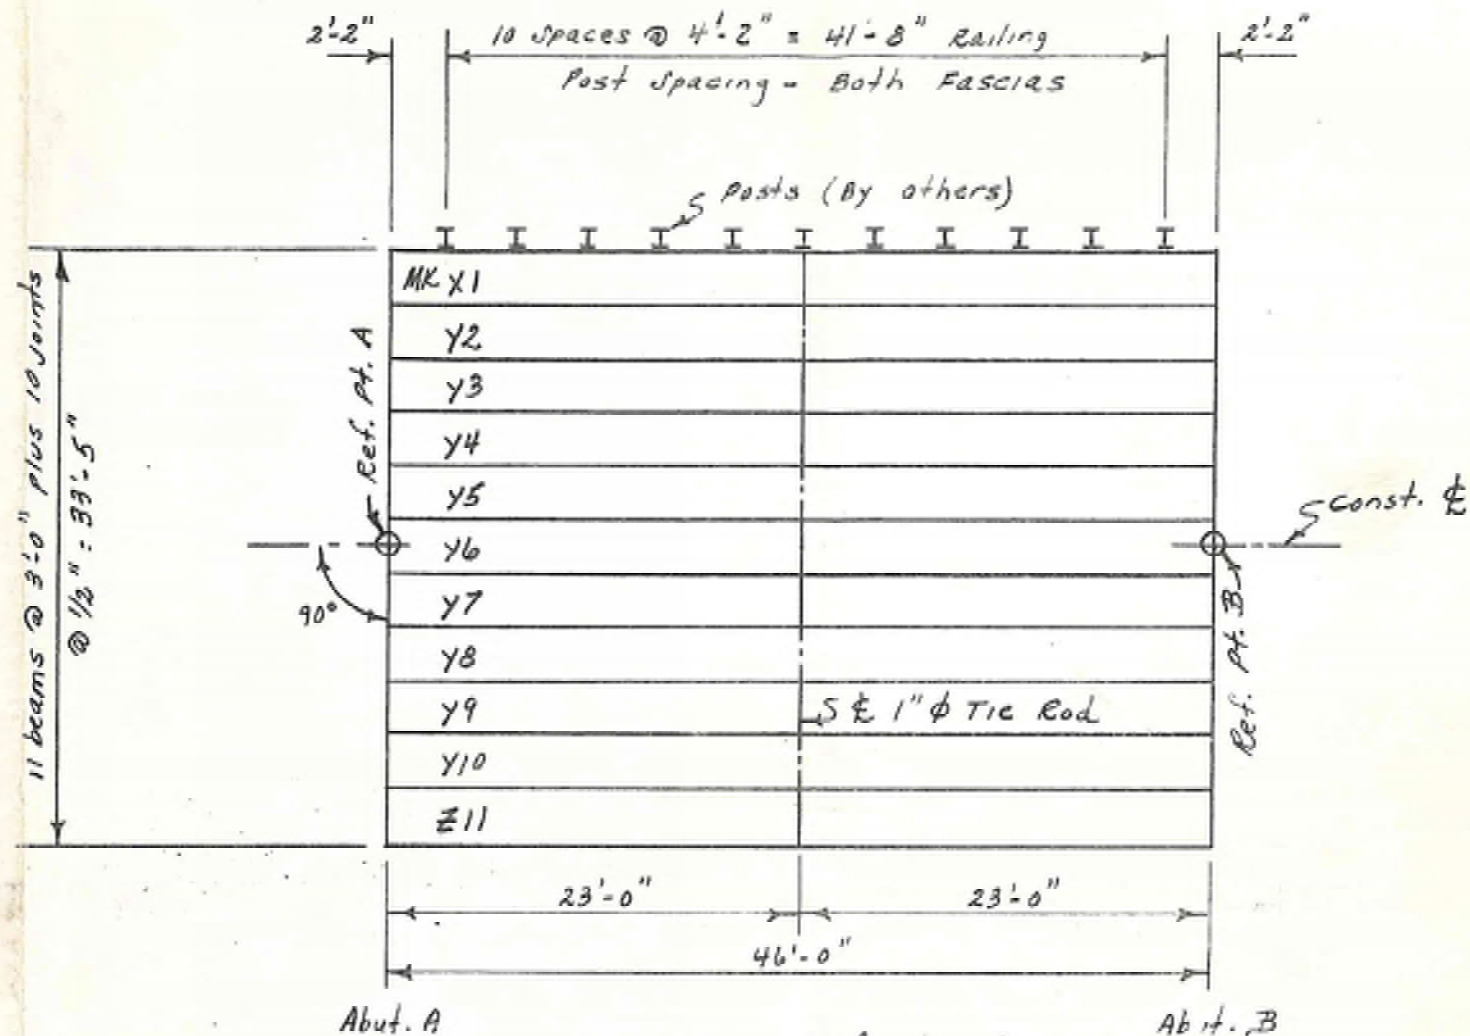 2'-2"
10 Spaces @ 4'-2" = 41'-8" Railing
2'-2"
Post Spacing - Both Fascias
Posts (By others)
11 beams @ 3'-0" plus 10 joints
@ 1/2" = 33'-5"
Ref. Pt. A
MK X1
Y2
Y3
Y4
Y5
Y6
Y7
Y8
Y9
Y10
Z11
90°
Const. ℄
Ref. Pt. B
℄ 1" ϕ Tie Rod
23'-0"
23'-0"
46'-0"
Abut. A
Abut. B